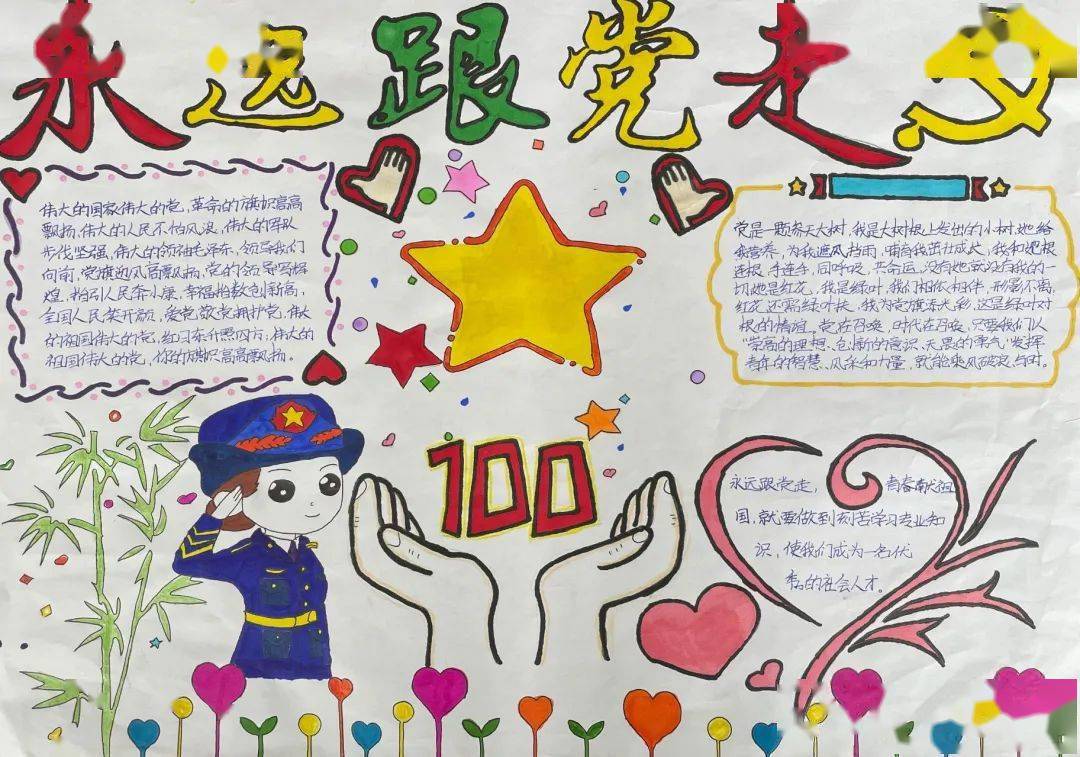 永远跟党走
伟大的国家伟大的党,革命的旗帜高高
飘扬,伟大的人民不怕风浪,伟大的军队
步伐坚强,伟大的领袖毛泽东,领导我们
向前,党旗迎风高飘扬,党的领导写辉
煌,指引人民奔小康,幸福指数创新高,
全国人民笑开颜,爱党敬党拥护党,伟大
的祖国伟大的党,红日东升照四方,伟大的
祖国伟大的党,你的旗帜高高飘扬。
党是一颗参天大树,我是大树根上发出的小树,她给
我营养,为我遮风挡雨,哺育我茁壮成长,我和她根
连根,手连手,同呼吸,共命运,没有她就没有我的一
切她是红花,我是绿叶,我们相依相伴,形影不离,
红花还需绿叶扶,我为党旗添光彩,这是绿叶对
根的情谊,党在召唤,时代在召唤,只要我们以
"崇高的理想、创新的意识、无畏的勇气"发挥
青年的智慧、风采和力量,就能乘风破浪,与时。
100
永远跟党走, 青春献祖
国,就要做到刻苦学习专业知
识,使我们成为一名优
秀的社会人才。